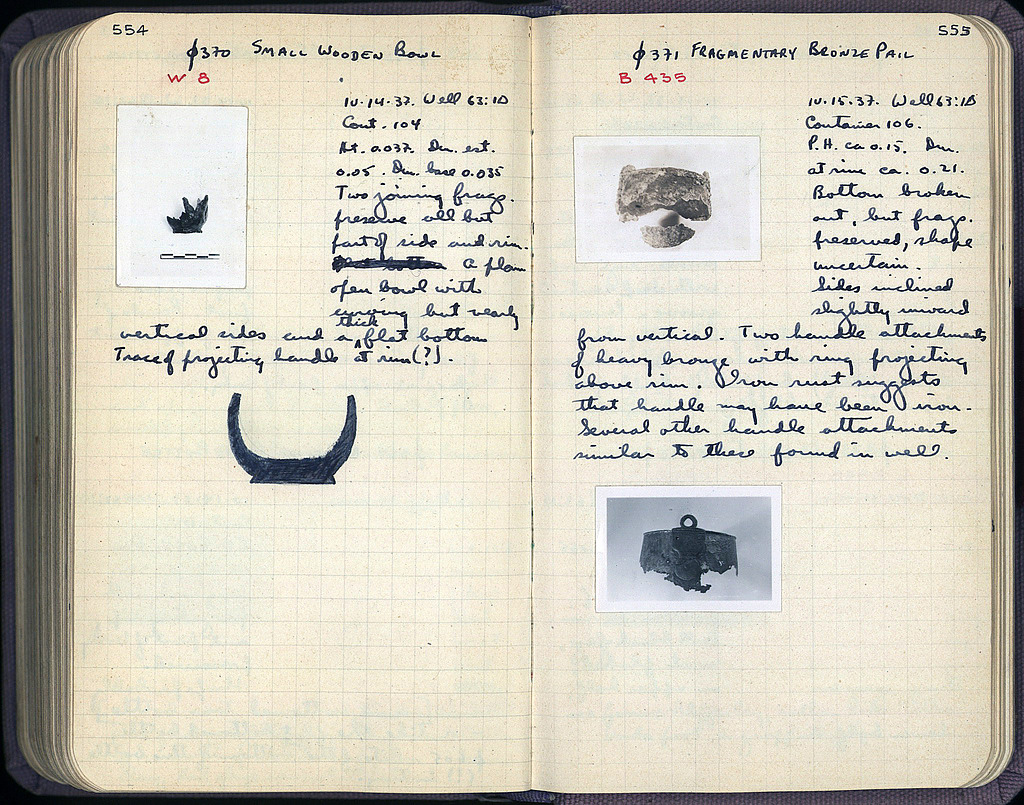 554
φ370 SMALL WOODEN BOWL
W 8
IV.14.37. Well 63:1D
Cont. 104
Ht. 0.037. Dm. est.
0.05. Dm. base 0.035
Two joining frags.
preserve all but
part of side and rim.
a plain
open bowl with
curving but nearly
vertical sides and a thick flat bottom
Trace of projecting handle at rim (?).
555
φ371 FRAGMENTARY BRONZE PAIL
B 435
IV.15.37. Well 63:1D
Container 106.
P.H. ca 0.15. Dm.
at rim ca. 0.21.
Bottom broken
out, but frags.
preserved, shape
uncertain.
Sides inclined
slightly inward
from vertical. Two handle attachments
of heavy bronze with ring projecting
above rim. Iron rust suggests
that handle may have been iron.
Several other handle attachments
similar to these found in well.